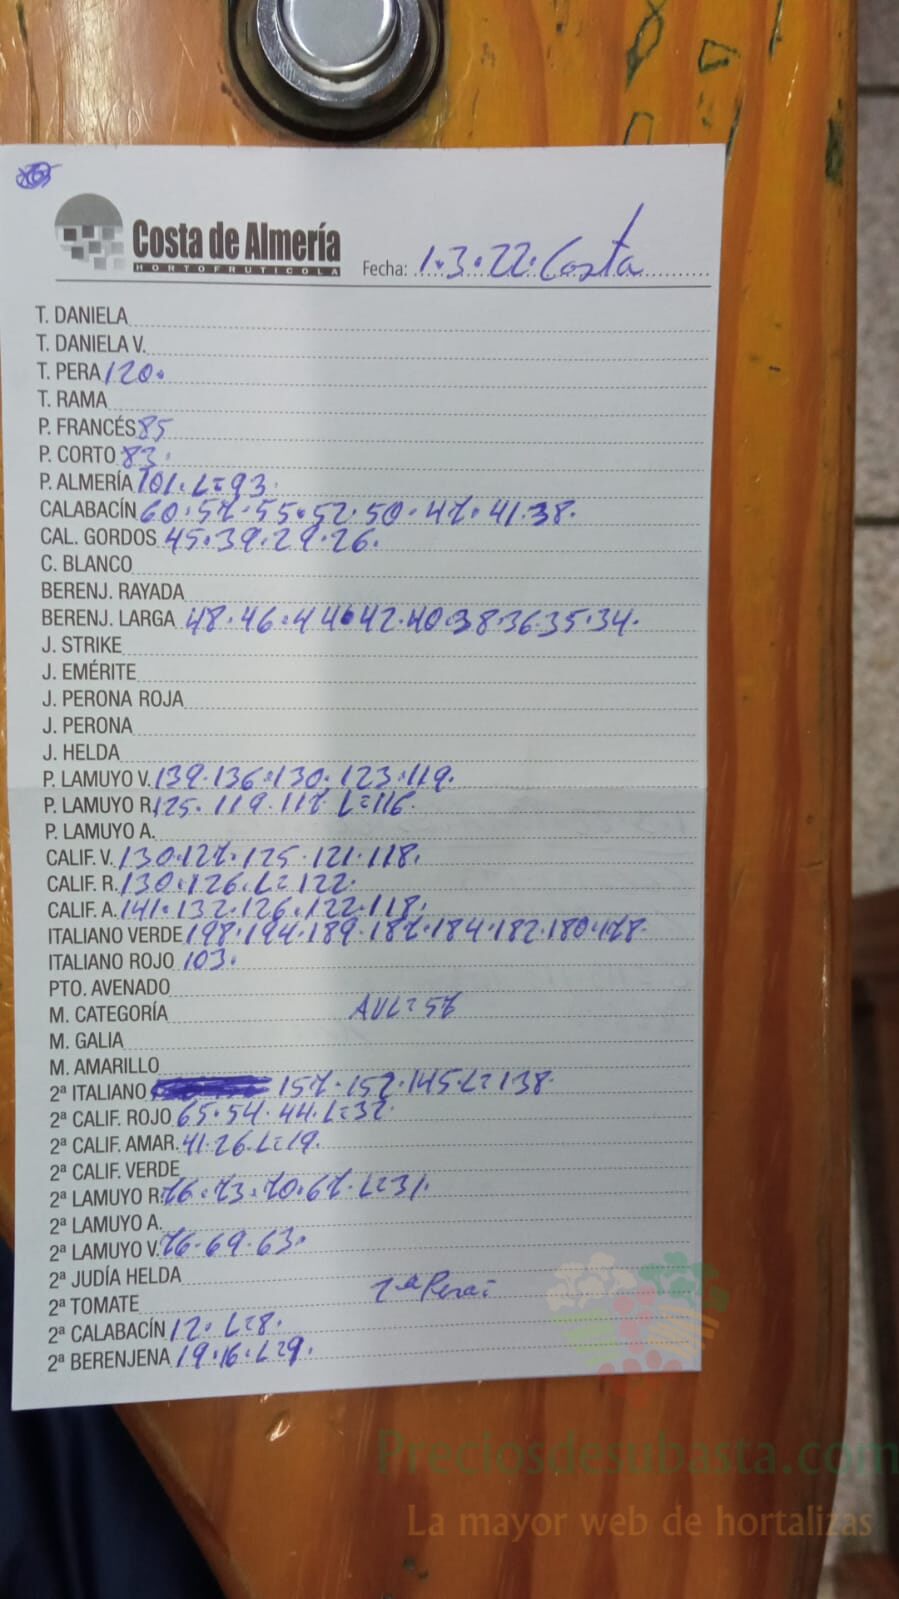 Costa de Almería
HORTOFRUTICOLA
Fecha: 1.3.22. Costa
T. DANIELA
T. DANIELA V.
T. PERA 120.
T. RAMA
P. FRANCÉS 85
P. CORTO 83.
P. ALMERÍA 101. L=93.
CALABACÍN 60.57.55.52.50.47.41.38.
CAL. GORDOS 45.39.29.26.
C. BLANCO
BERENJ. RAYADA
BERENJ. LARGA 48.46.44.42.40.38.36.35.34.
J. STRIKE
J. EMÉRITE
J. PERONA ROJA
J. PERONA
J. HELDA
P. LAMUYO V. 139.136.130.123.119.
P. LAMUYO R. 125.119.117 L=116.
P. LAMUYO A.
CALIF. V. 130.127.125.121.118.
CALIF. R. 130.126.L=122.
CALIF. A. 141.132.126.122.118.
ITALIANO VERDE 198.194.189.187.184.182.180.178.
ITALIANO ROJO 103.
PTO. AVENADO
M. CATEGORÍA AVL=57
M. GALIA
M. AMARILLO
2ª ITALIANO 157.152.145.L=138
2ª CALIF. ROJO 65.54.44.L=32.
2ª CALIF. AMAR. 41.26.L=19.
2ª CALIF. VERDE
2ª LAMUYO R. 76.73.70.67.L=31.
2ª LAMUYO A.
2ª LAMUYO V. 76.69.63.
2ª JUDÍA HELDA
2ª TOMATE 2ª Pera:
2ª CALABACÍN 12. L=8.
2ª BERENJENA 19.16.L=9.
Preciosdesubasta.com
La mayor web de hortalizas